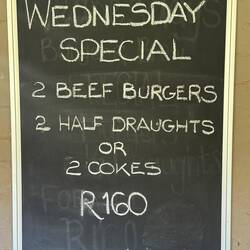 WEDNESDAY
SPECIAL
2 BEEF BURGERS
2 HALF DRAUGHTS
OR
2 COKES
R160